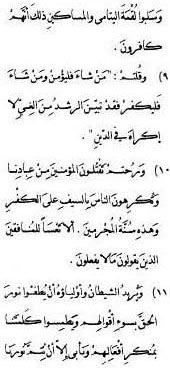 وَسَلَبُوا لُقْمَةَ اليَتَامَى والمساكينِ ذلكَ أنَّهُمْ
كافرونَ .
(٩) وقُلْتُمْ : "مَنْ شاءَ فَلْيُؤْمِنْ وَمَنْ شَاءَ
فَلْيَكْفُرْ فَقَدْ تَبَيَّنَ الرُّشْدُ مِنَ الغَيِّ لا
إكراهَ في الدِّينِ " .
(١٠) وَرُحْتُمْ تَقْتُلُونَ المُؤْمنينَ مِنْ عبادِنا
وتُكْرِهُونَ الناسَ بالسيفِ على الكُفْرِ
وَهذهِ سُنَّةُ المُجْرمينَ . ألا تَعْسًا للمُنافقينَ
الذينَ يقولونَ مالا يفعلونَ .
(١١) ويُريدُ الشيطانُ وأولياؤهُ أنْ يُطْفِئوا نورَ
الحقِّ بسوءِ أقوالِهِمْ ويَطْمِسُوا كَلِمَتَنَا
بِمُنْكَرِ أفعالِهِمْ ونأبى إلَّا أنْ نُتِمَّ نُورَنَا